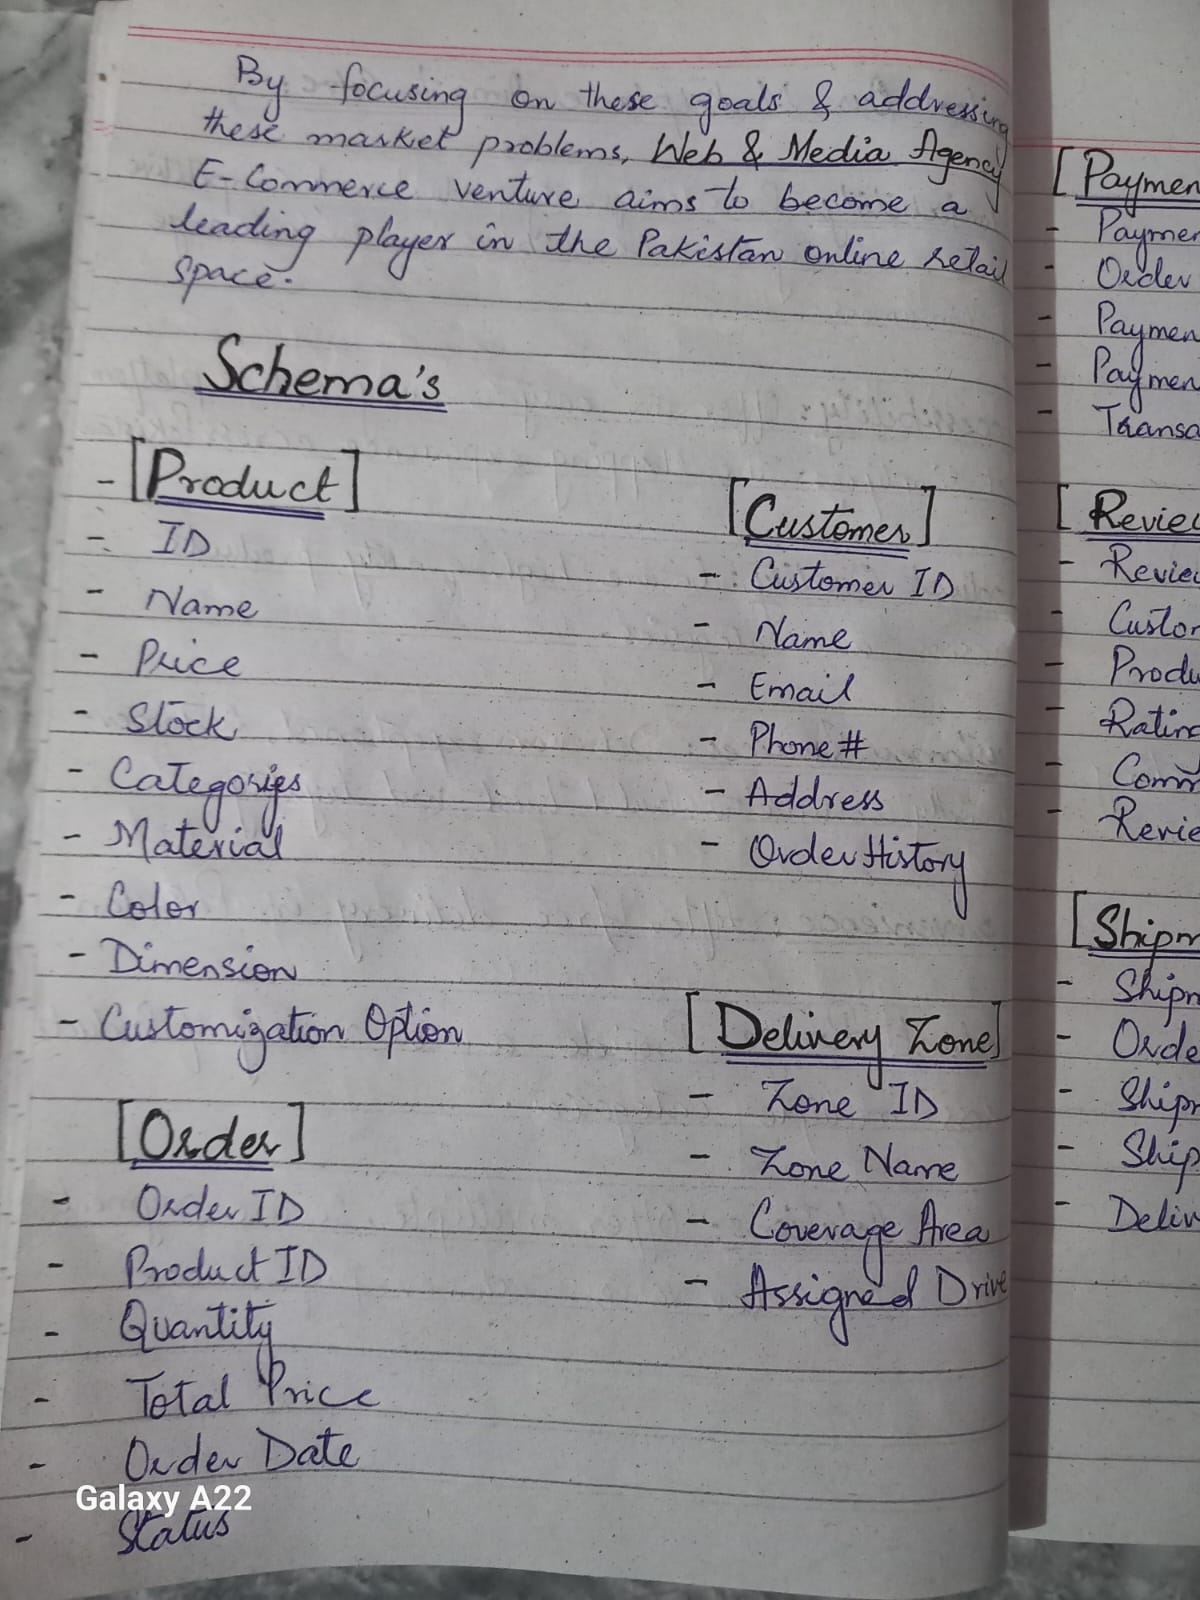 By focusing on these goals & addressing
these market problems, Web & Media Agency
E-Commerce venture aims to become a
leading player in the Pakistan online retail
space.
Schema's
- [Product]
- ID
- Name
- Price
- Stock
- Categories
- Material
- Color
- Dimension
- Customization Option
[Order]
- Order ID
- Product ID
- Quantity
- Total Price
- Order Date
- Status
[Customer]
- Customer ID
- Name
- Email
- Phone #
- Address
- Order History
[Delivery Zone]
- Zone ID
- Zone Name
- Coverage Area
- Assigned Drive
[Paymen
- Paymen
- Order
- Paymen
- Paymen
- Transa
[Review
- Review
- Custom
- Produ
- Rating
- Comm
- Revie
[Shipm
- Shipm
- Orde
- Shipm
- Ship
- Deliv
Galaxy A22